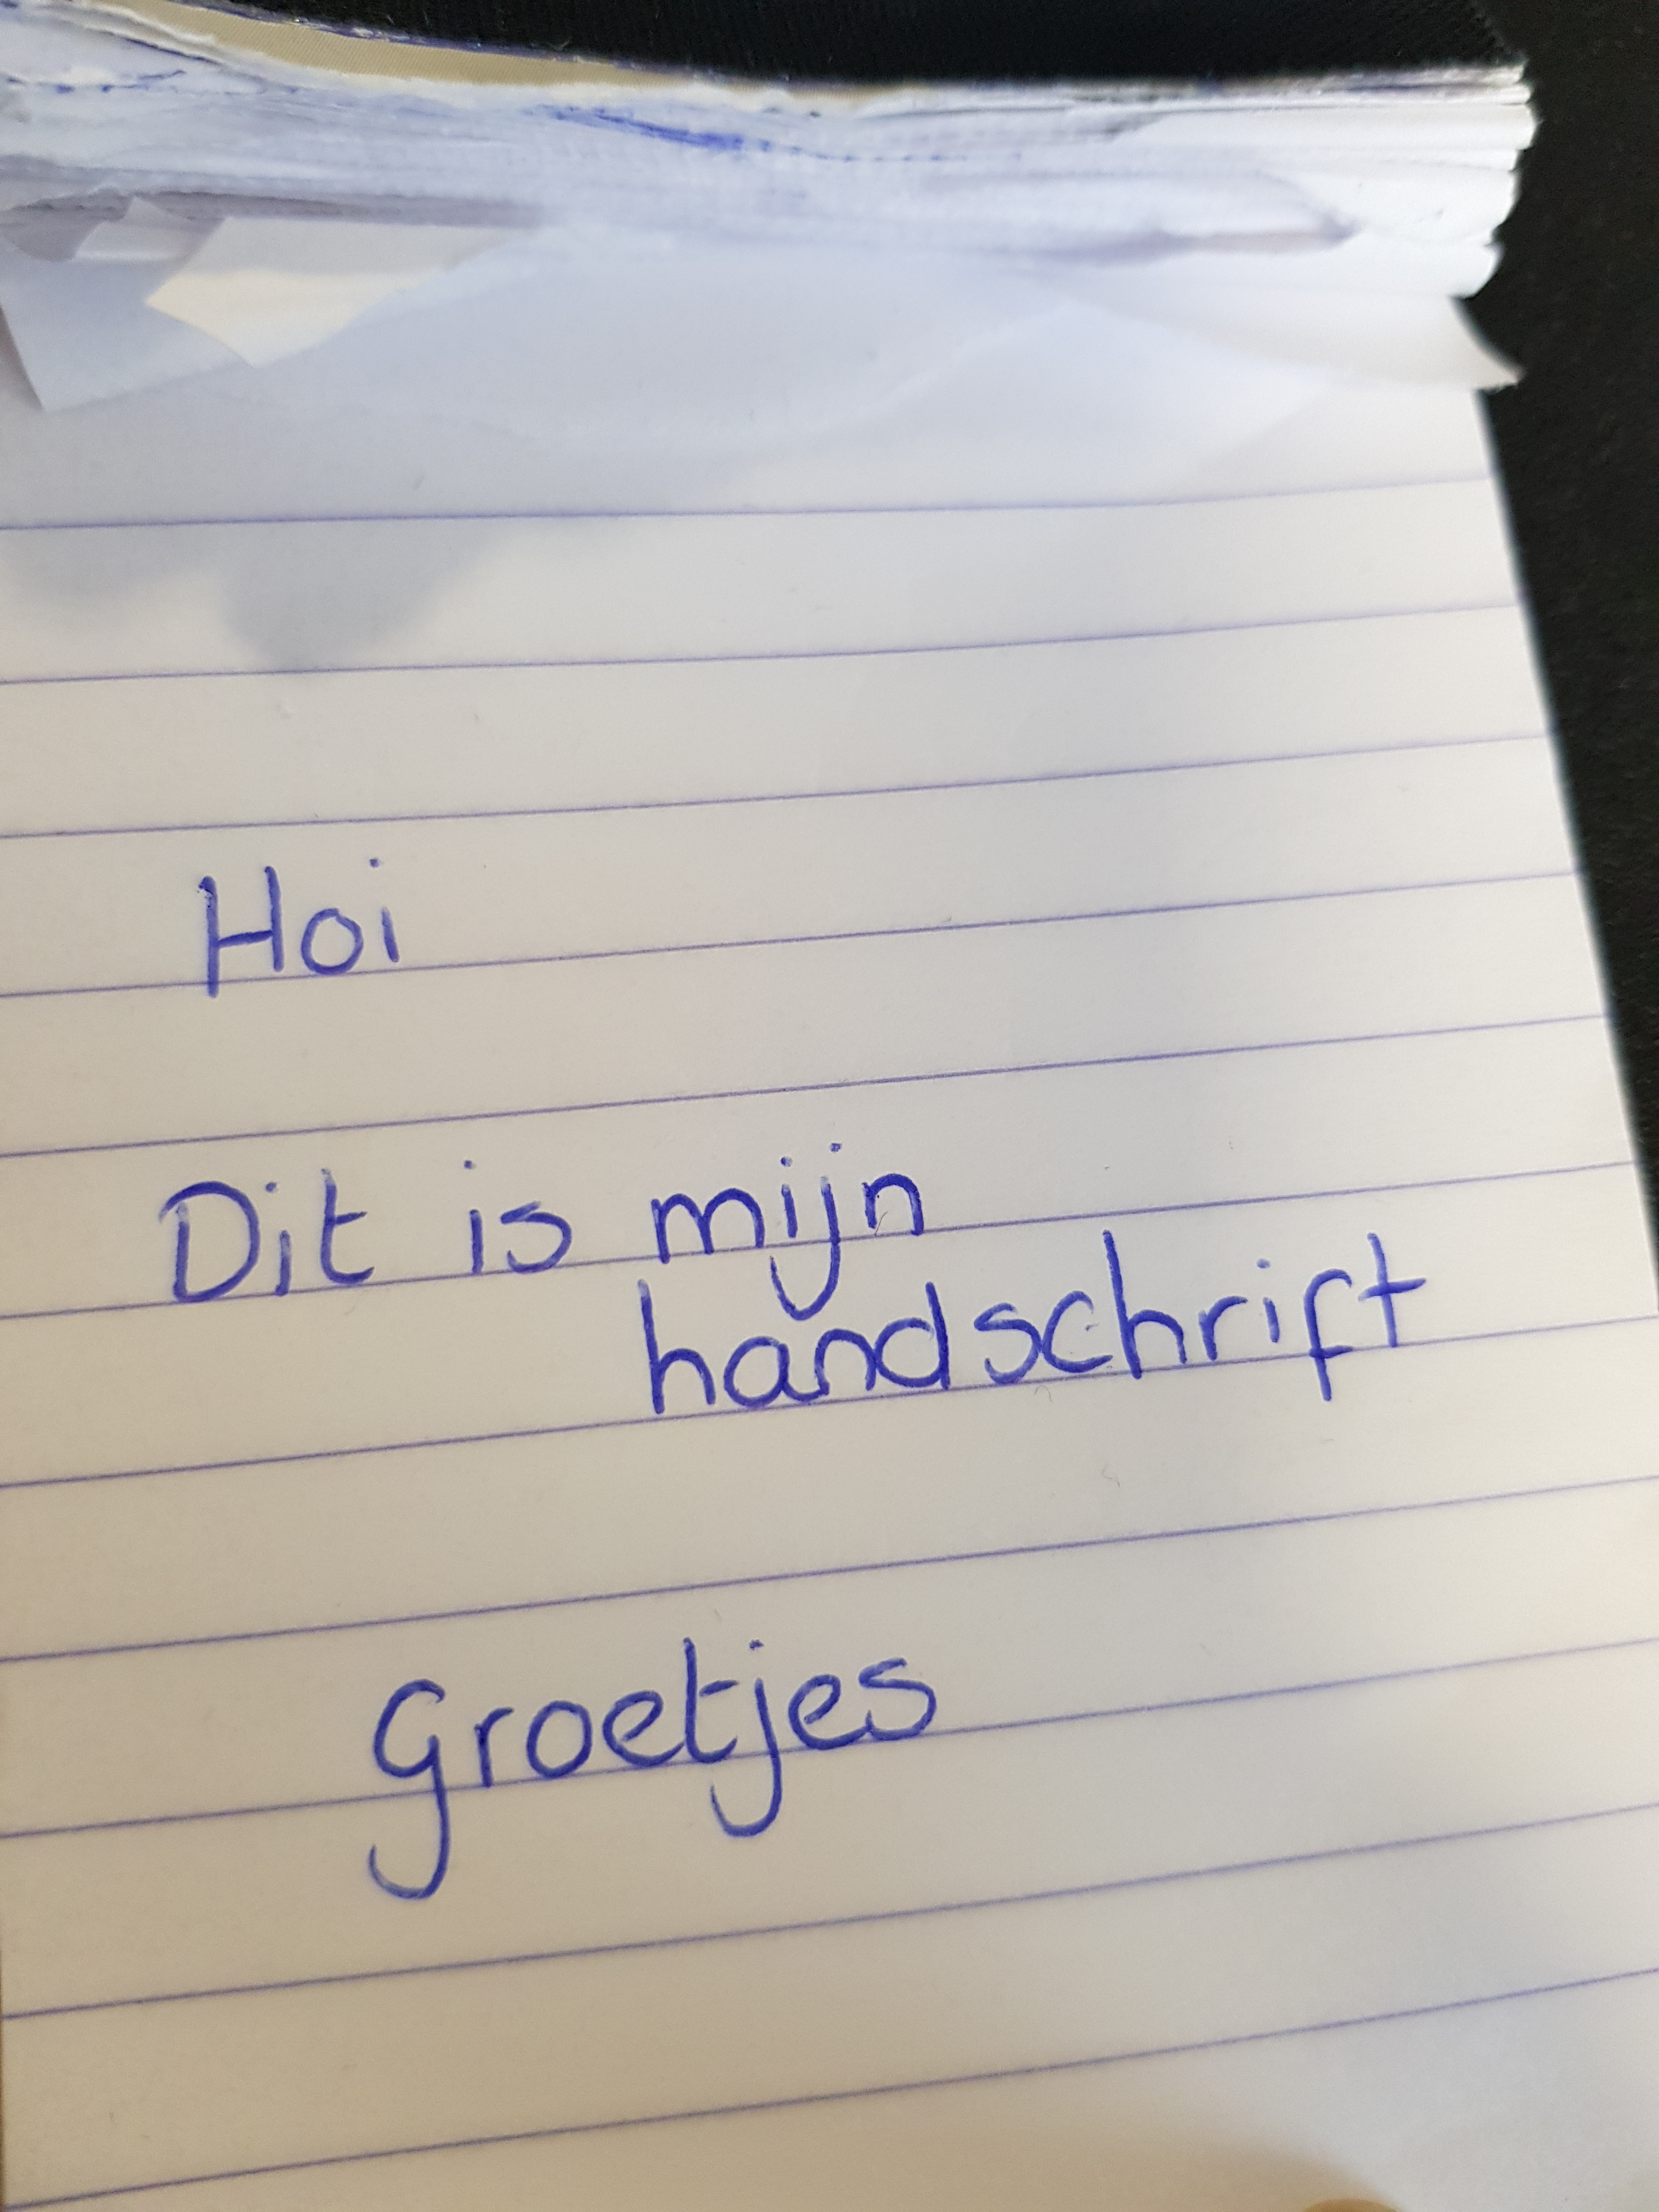 Hoi
Dit is mijn
handschrift
Groetjes